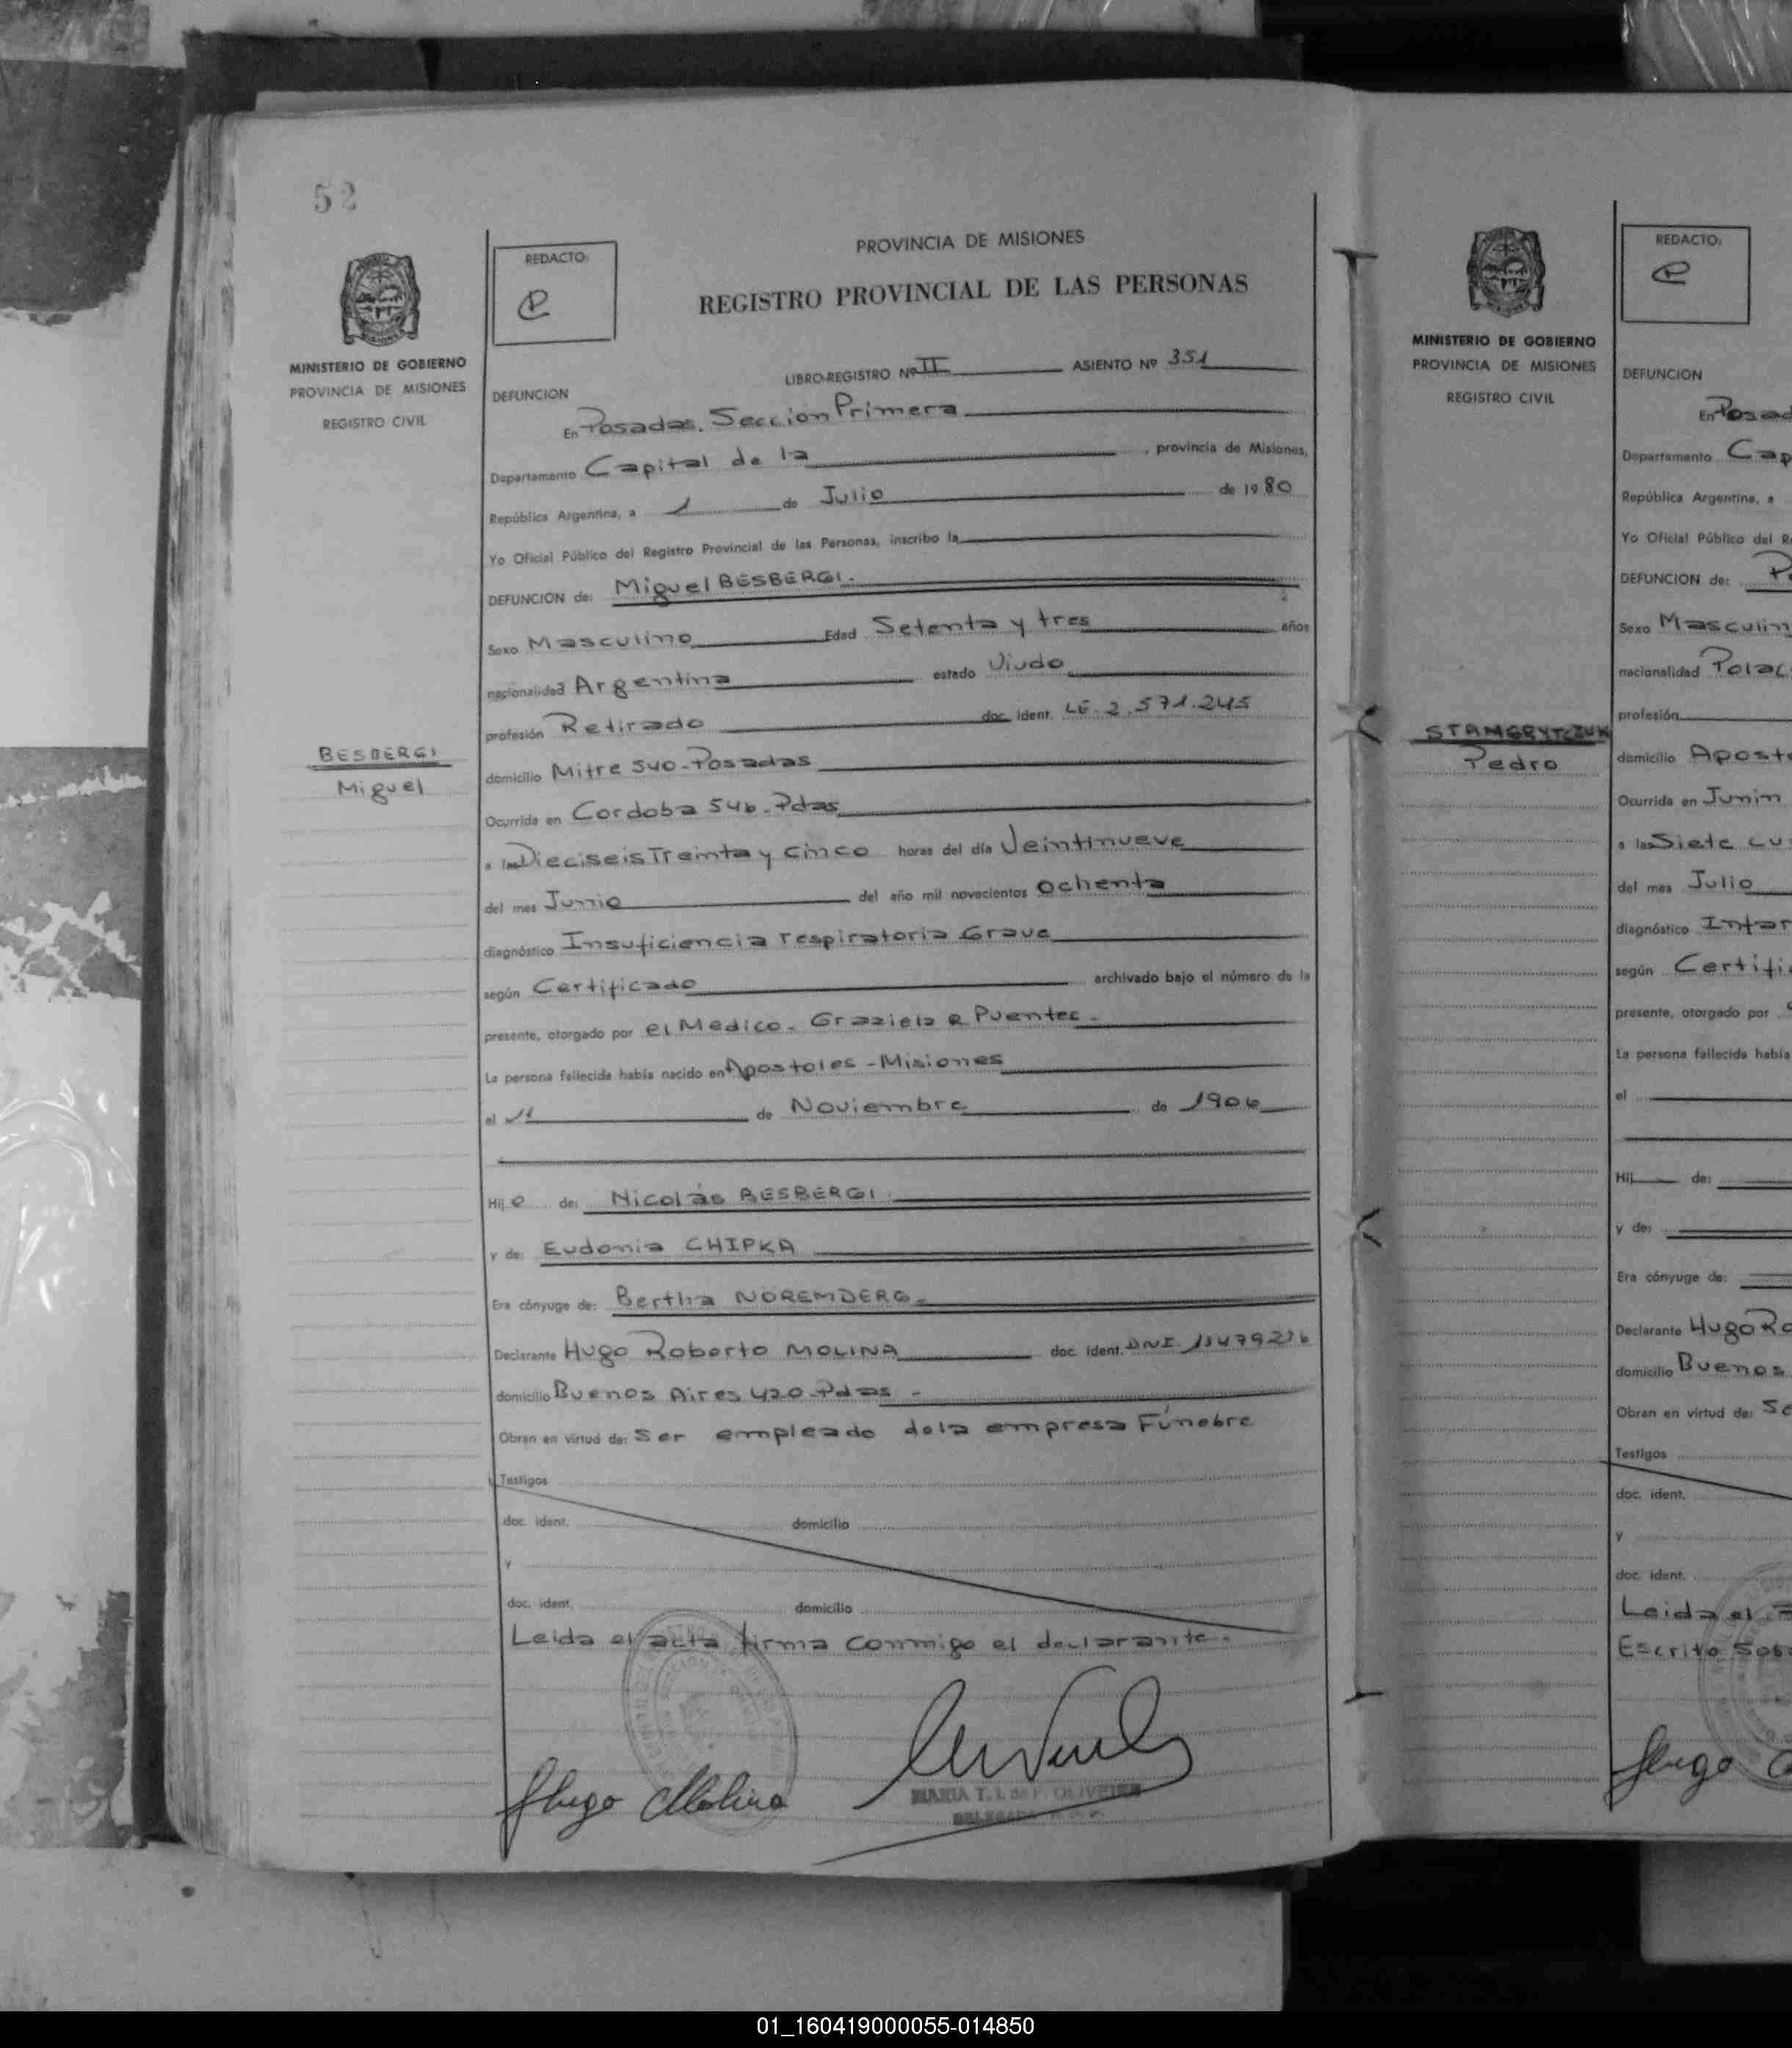 52
MINISTERIO DE GOBIERNO
PROVINCIA DE MISIONES
REGISTRO CIVIL
BESBERGI
Miguel
REDACTO:
PROVINCIA DE MISIONES
REGISTRO PROVINCIAL DE LAS PERSONAS
LIBRO-REGISTRO Nº II ASIENTO Nº 351
DEFUNCION
En Posadas. Sección Primera
Departamento Capital de la , provincia de Misiones,
República Argentina, a 1 de Julio de 1980
Yo Oficial Público del Registro Provincial de las Personas, inscribo la
DEFUNCION de: Miguel BESBERGI.
Sexo Masculino Edad Setenta y tres años
nacionalidad Argentina estado Viudo
profesión Retirado doc. ident. LE. 2.571.245
domicilio Mitre 540-Posadas
Ocurrida en Cordoba 546-Pdas
a las Dieciseis Treinta y cinco horas del día Veintinueve
del mes Junio del año mil novecientos Ochenta
diagnóstico Insuficiencia respiratoria Grave
según Certificado archivado bajo el número de la
presente, otorgado por el Medico. Graziela R Puentes.
La persona fallecida había nacido en Apostoles - Misiones
el 11 de Noviembre de 1906
Hij o de: Nicolás BESBERGI
y de: Eudonia CHIPKA
Era cónyuge de: Bertha NOREMDERG.
Declarante Hugo Roberto MOLINA doc. ident. DNI.
domicilio Buenos Aires 420-Pdas -
Obran en virtud de: Ser empleado dela empresa Fúnebre
Testigos
doc. ident. domicilio
y
doc. ident. domicilio
Leida el acta firma conmigo el declarante.
Hugo Molina
MARIA T. OLIVEIRA
DELEGADA
MINISTERIO DE GOBIERNO
PROVINCIA DE MISIONES
REGISTRO CIVIL
Pedro
REDACTO:
DEFUNCION
En Posad
Departamento Cap
República Argentina, a
Yo Oficial Público del R
DEFUNCION de:
Sexo Masculin
nacionalidad Polac
profesión
domicilio Aposto
Ocurrida en Junin
a las Siete cu
del mes Julio
diagnóstico Infar
según Certific
presente, otorgado por
La persona fallecida había
el
Hij de:
y de:
Era cónyuge de:
Declarante Hugo Ro
domicilio Buenos
Obran en virtud de: Se
Testigos
doc. ident.
y
doc. ident.
Leida el
Escrito Sob
Hugo
01_160419000055-014850